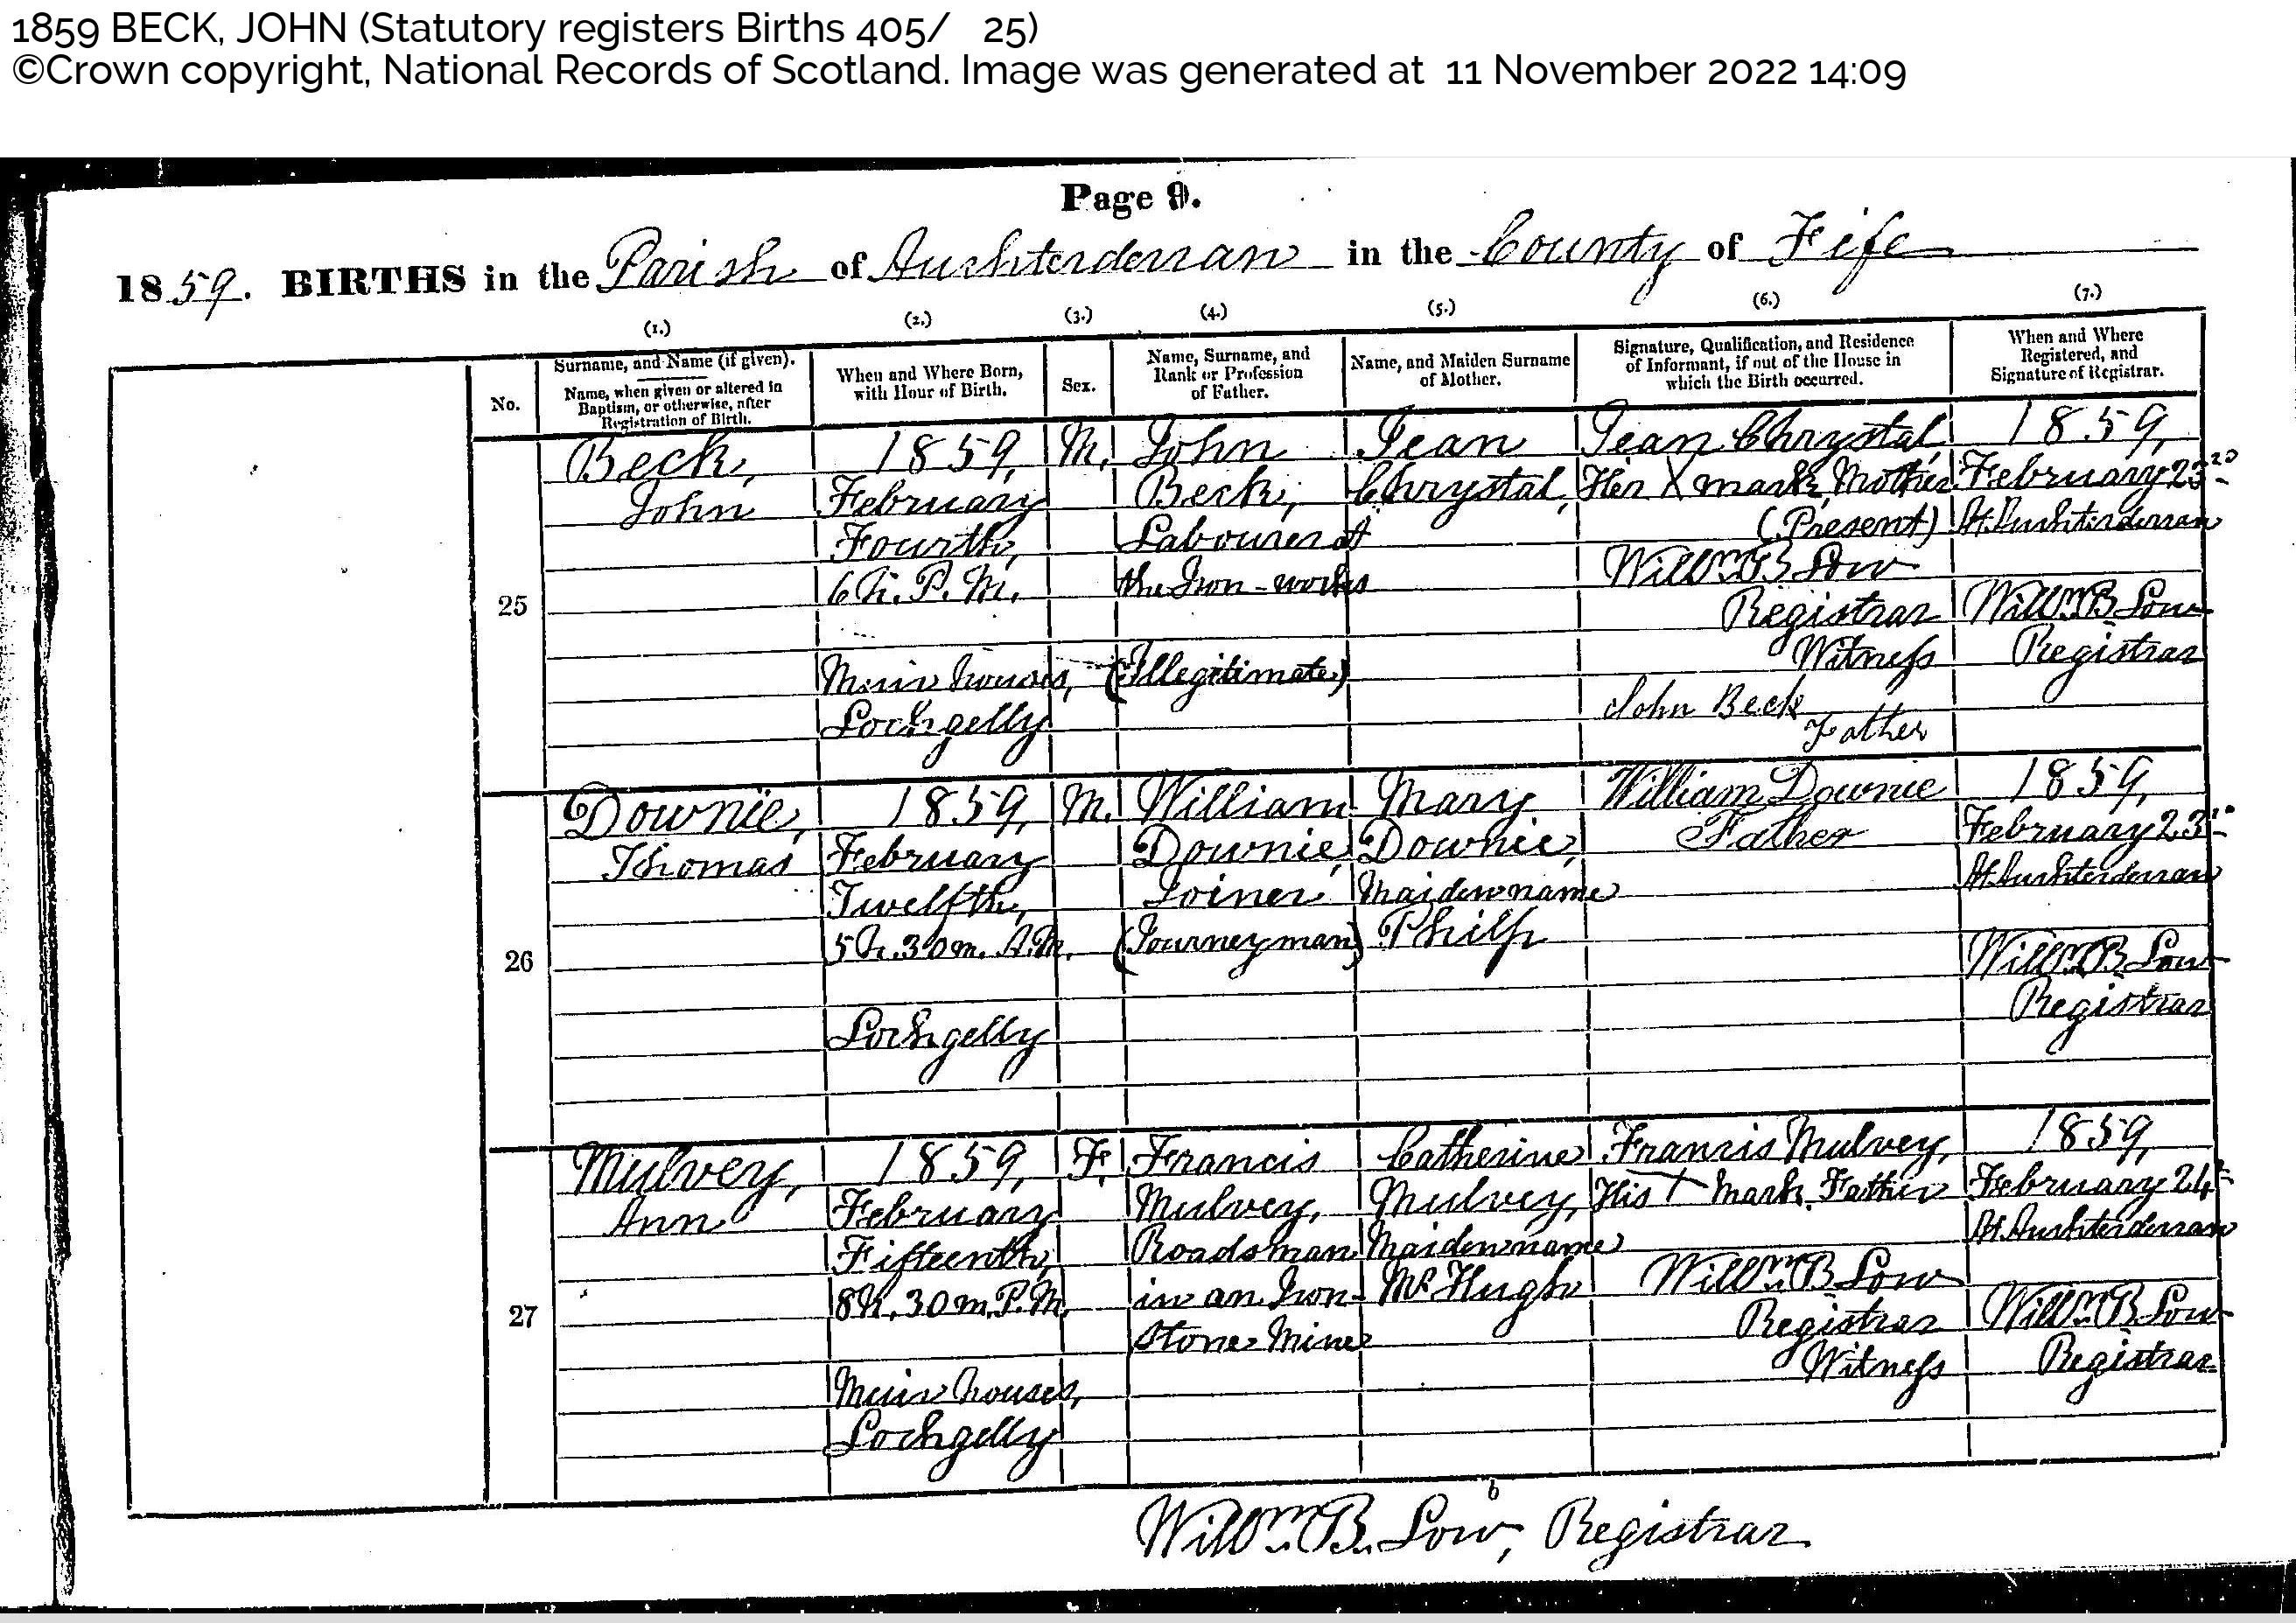 1859 BECK, JOHN (Statutory registers Births 405/ 25)
©Crown copyright, National Records of Scotland. Image was generated at 11 November 2022 14:09
Page 9.
1859. BIRTHS in the Parish of Auchterderran in the County of Fife
(1.) (2.) (3.) (4.) (5.) (6.) (7.)
No.
Surname, and Name (if given).
Name, when given or altered in
Baptism, or otherwise, after
Registration of Birth.
When and Where Born,
with Hour of Birth.
Sex.
Name, Surname, and
Rank or Profession
of Father.
Name, and Maiden Surname
of Mother.
Signature, Qualification, and Residence
of Informant, if out of the House in
which the Birth occurred.
When and Where
Registered, and
Signature of Registrar.
25
Beck,
John
1859,
February
Fourth,
6h. P.M.
Muir houses,
Lochgelly
M.
John
Beck,
Labourer at
the Iron-works
(Illegitimate)
Jean
Chrystal,
Jean Chrystal,
Her X mark, Mother
(Present)
Willm. B Low
Registrar
Witness
John Beck
Father
1859,
February 23rd
At Auchterderran
Willm. B Low
Registrar
26
Downie,
Thomas
1859,
February
Twelfth,
5h. 30m. A.M.
Lochgelly
M.
William
Downie,
Joiner
(Journeyman)
Mary
Downie,
Maiden name
Philp
William Downie
Father
1859,
February 23rd
At Auchterderran
Willm. B Low
Registrar
27
Mulvey,
Ann
1859,
February
Fifteenth,
8h. 30m. P.M.
Muir houses,
Lochgelly
F.
Francis
Mulvey,
Roadsman
in an Iron-
stone Mine
Catherine
Mulvey,
Maiden name
McHugh
Francis Mulvey,
His + Mark. Father
Willm. B Low
Registrar
Witness
1859,
February 24th
At Auchterderran
Willm. B Low
Registrar
Willm. B. Low, Registrar